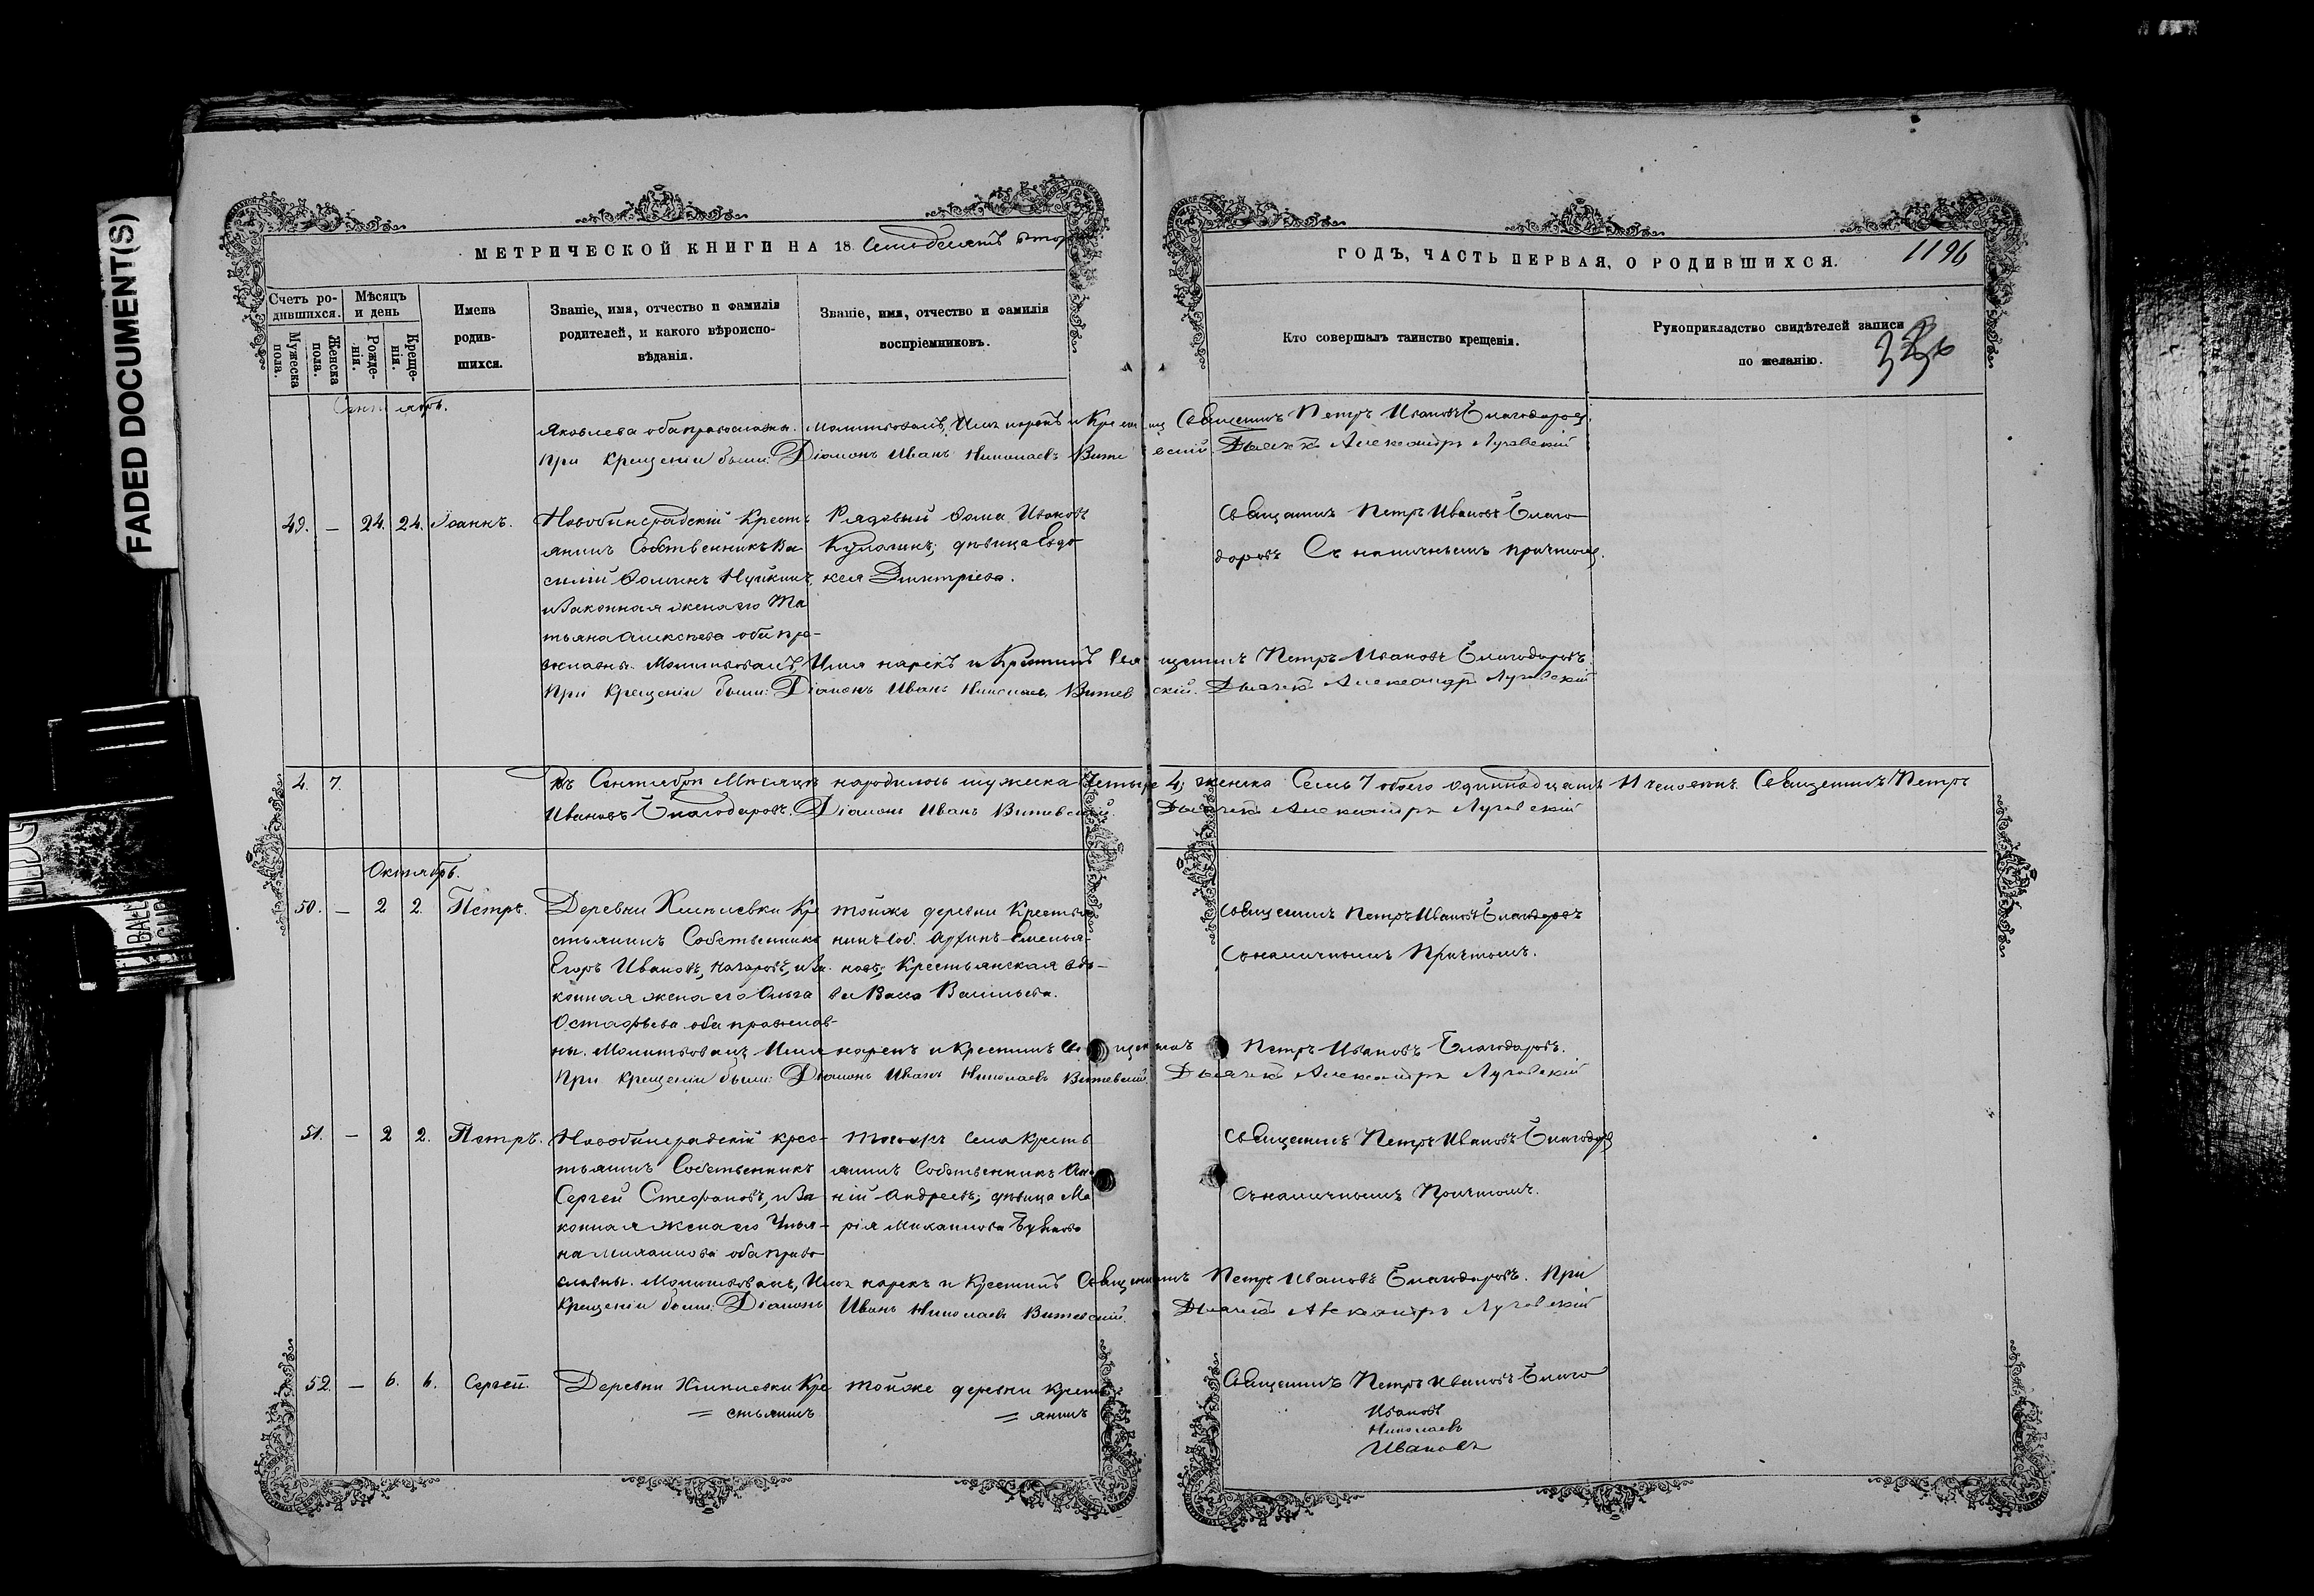 FADED DOCUMENT(S)
МЕТРИЧЕСКОЙ КНИГИ НА 18 Семьдесятъ второй
ГОДЪ, ЧАСТЬ ПЕРВАЯ, О РОДИВШИХСЯ.
1196
Счетъ ро-
дившихся.
Мужеска
пола.
Женска
пола.
Мѣсяцъ
и день
Рожде-
нія.
Креще-
нія.
Имена
родив-
шихся.
Званіе, имя, отчество и фамилія
родителей, и какого вѣроиспо-
вѣданія.
Званіе, имя, отчество и фамилія
воспріемниковъ.
Кто совершалъ таинство крещенія.
Рукоприкладство свидѣтелей записи
по желанію.
Сентябрь.
Яковлева оба православны. Молитвовалъ, Имя нарекъ и Крестилъ Священникъ Петръ Ивановъ Благодаровъ.
При Крещеніи были: Діаконъ Иванъ Николаевъ Витевскій. Дьячекъ Александръ Луговскій
49. — 24. 24. Іоаннъ.
Крестьянинъ Собственникъ Василій
и Законная жена его Татьяна
Алексѣева оба православны.
Рядовый Ѳома Ивановъ
Кулагинъ; дѣвица Евдокея
Димитріева.
Священникъ Петръ Ивановъ Благодаровъ
Съ наличнымъ причтомъ.
Молитвовалъ, Имя нарекъ и Крестилъ Священникъ Петръ Ивановъ Благодаровъ.
При Крещеніи были: Діаконъ Иванъ Николаевъ Витевскій. Дьячекъ Александръ Луговскій
4. 7.
Въ Сентябрѣ Мѣсяцѣ народилось мужеска Четыре 4; женска Семь 7 обоего одиннадцать 11 человекъ. Священникъ Петръ
Ивановъ Благодаровъ. Діаконъ Иванъ Витевскій. Дьячекъ Александръ Луговскій
Октябрь.
50. — 2 2. Петръ.
Деревни Кре
стьянинъ Собственникъ
Егоръ Ивановъ, и За
конная жена его Ольга
Остафьева оба православ-
ны.
тойже деревни Крестья
нинъ Соб. Емелья-
новъ; Крестьянская вдо-
ва Васса Васильева.
Священникъ Петръ Ивановъ Благодаровъ
Съ наличнымъ Причтомъ.
Молитвовалъ, Имя нарекъ и Крестилъ Священникъ Петръ Ивановъ Благодаровъ.
При Крещеніи были: Діаконъ Иванъ Николаевъ Витевскій. Дьячекъ Александръ Луговскій
51. — 2 2. Петръ.
крес-
тьянинъ Собственникъ
Сергей Стефановъ, и За-
конная жена его Улья-
на Михаилова оба право
славны.
тогожъ села Кресть
янинъ Собственникъ
Андреевъ; дѣвица Ма
рія Михаилова
Священникъ Петръ Ивановъ Благодаровъ
Съ наличнымъ Причтомъ.
Молитвовалъ, Имя нарекъ и Крестилъ Священникъ Петръ Ивановъ Благодаровъ. При
Крещеніи были: Діаконъ Иванъ Николаевъ Витевскій. Дьячекъ Александръ Луговскій
52. — 6. 6. Сергей.
Деревни Кре
= стьянинъ
тойже деревни Кресть
= янинъ
Священникъ Петръ Ивановъ Благо
Ивановъ
Николаевъ
Ивановъ